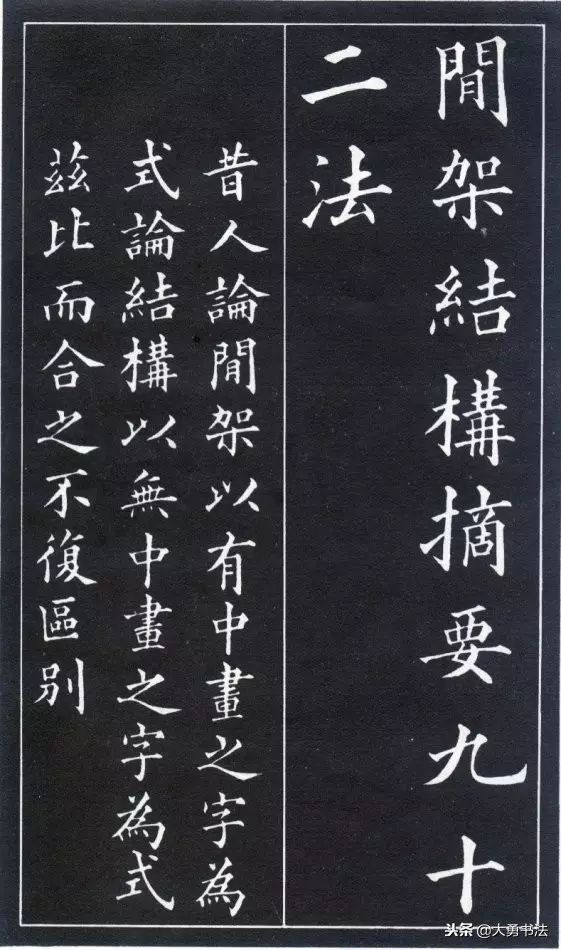 間架結構摘要九十
二法
昔人論間架以有中畫之字為
式論結構以無中畫之字為式
茲比而合之不復區別
头条 @大勇书法